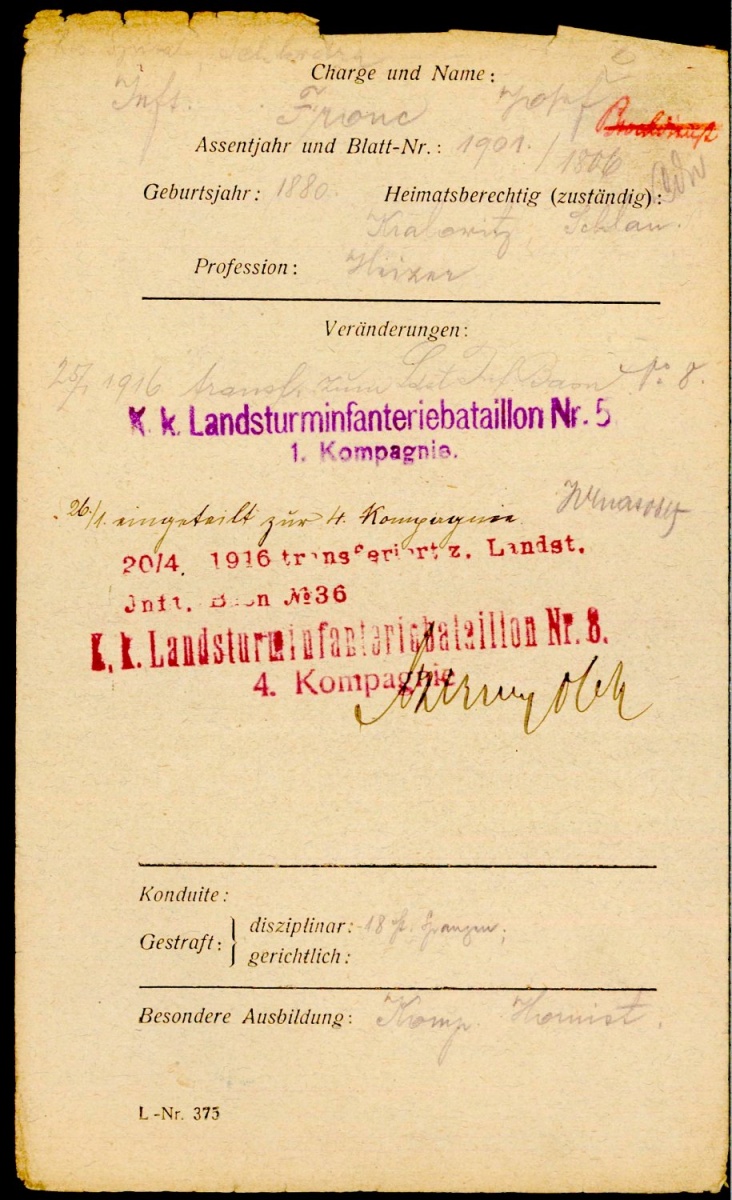 Charge und Name:
Inft. Fronc Josef
Assentjahr und Blatt-Nr.: 1901. / 1806
Geburtsjahr: 1880. Heimatsberechtig (zuständig):
Kralowitz Schlan.
Profession: Heizer
Veränderungen:
25/1 1916 transf. zum Lst Inf Baon No 8.
K. k. Landsturminfanteriebataillon Nr. 5
1. Kompagnie.
26./1. eingeteilt zur 4. Kompagnie
20/4. 1916 transferiert z. Landst.
Inft. Baon №36
K. k. Landsturminfanteriebataillon Nr. 8.
4. Kompagnie
Konduite:
Gestraft: disziplinar: 18 St. Spangen.
gerichtlich:
Besondere Ausbildung: Komp. Hornist.
L-Nr. 375